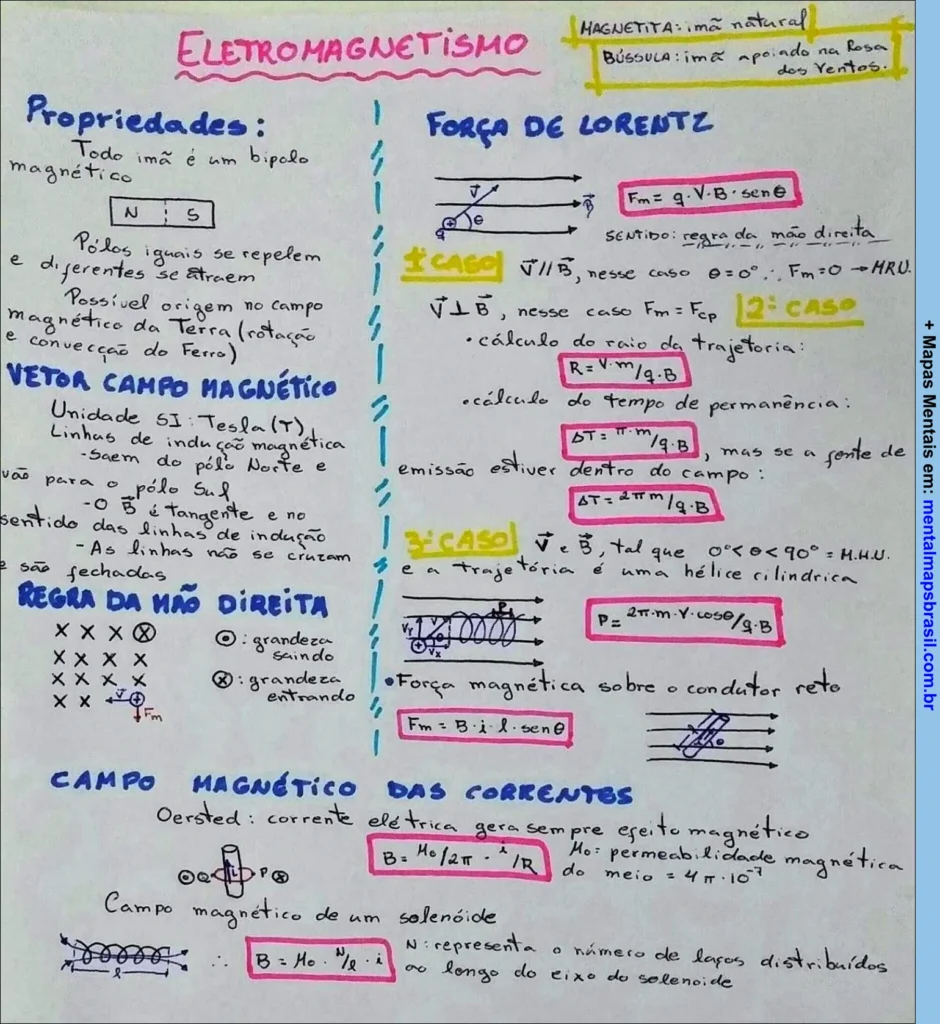 ELETROMAGNETISMO
MAGNETITA: imã natural
BÚSSULA: imã apoiado na Rosa
dos Ventos.
Propriedades:
Todo imã é um bipolo
magnético
N S
Pólos iguais se repelem
e diferentes se atraem
Possível origem no campo
magnético da Terra (rotação
e convecção do Ferro)
VETOR CAMPO MAGNÉTICO
Unidade SI: Tesla (T)
Linhas de indução magnética
-Saem do pólo Norte e
vão para o pólo Sul
-O B⃗ é tangente e no
sentido das linhas de indução
-As linhas não se cruzam
e são fechadas
REGRA DA MÃO DIREITA
X X X ⊗
X X X X
X X X X
X X V⃗ ⊕
Fm
⊙: grandeza
saindo
⊗: grandeza
entrando
FORÇA DE LORENTZ
V⃗
B⃗
θ
q
Fm = q·V·B·senθ
SENTIDO: regra da mão direita
1º CASO V⃗ // B⃗, nesse caso θ=0° ∴ Fm=0 → MRU.
V⃗ ⊥ B⃗, nesse caso Fm = Fcp 2º CASO
• cálculo do raio da trajetoria:
R = V·m/q·B
•cálculo do tempo de permanência:
ΔT = π·m/q·B, mas se a fonte de
emissão estiver dentro do campo:
ΔT = 2πm/q·B
3º CASO V⃗ e B⃗, tal que 0°<θ<90° = M.H.U.
e a trajetória é uma hélice cilindrica
P
Vy V θ
Vx
P = 2π·m·V·cosθ/q·B
•Força magnética sobre o condutor reto
Fm = B·i·l·senθ
θ
CAMPO MAGNÉTICO DAS CORRENTES
Oersted: corrente elétrica gera sempre efeito magnético
⊙Q i P⊗
B = Mo/2π · i/R
Mo = permeabilidade magnética
do meio = 4π·10⁻⁷
Campo magnético de um solenóide
l
∴ B = Mo · N/l · i
N: representa o número de laços distribuídos
ao longo do eixo do solenoide
+ Mapas Mentais em: mentalmapsbrasil.com.br